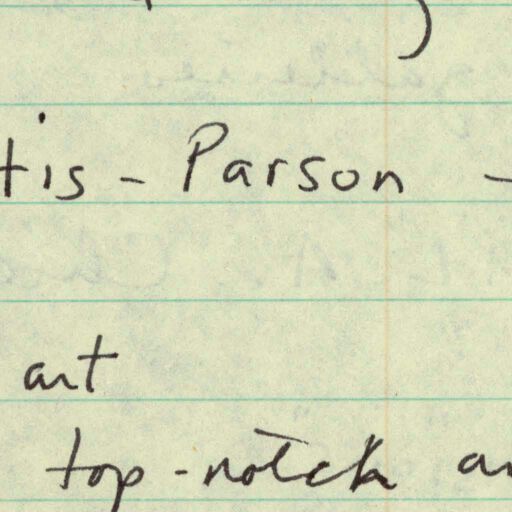 tis - Parson -
art
top-notch